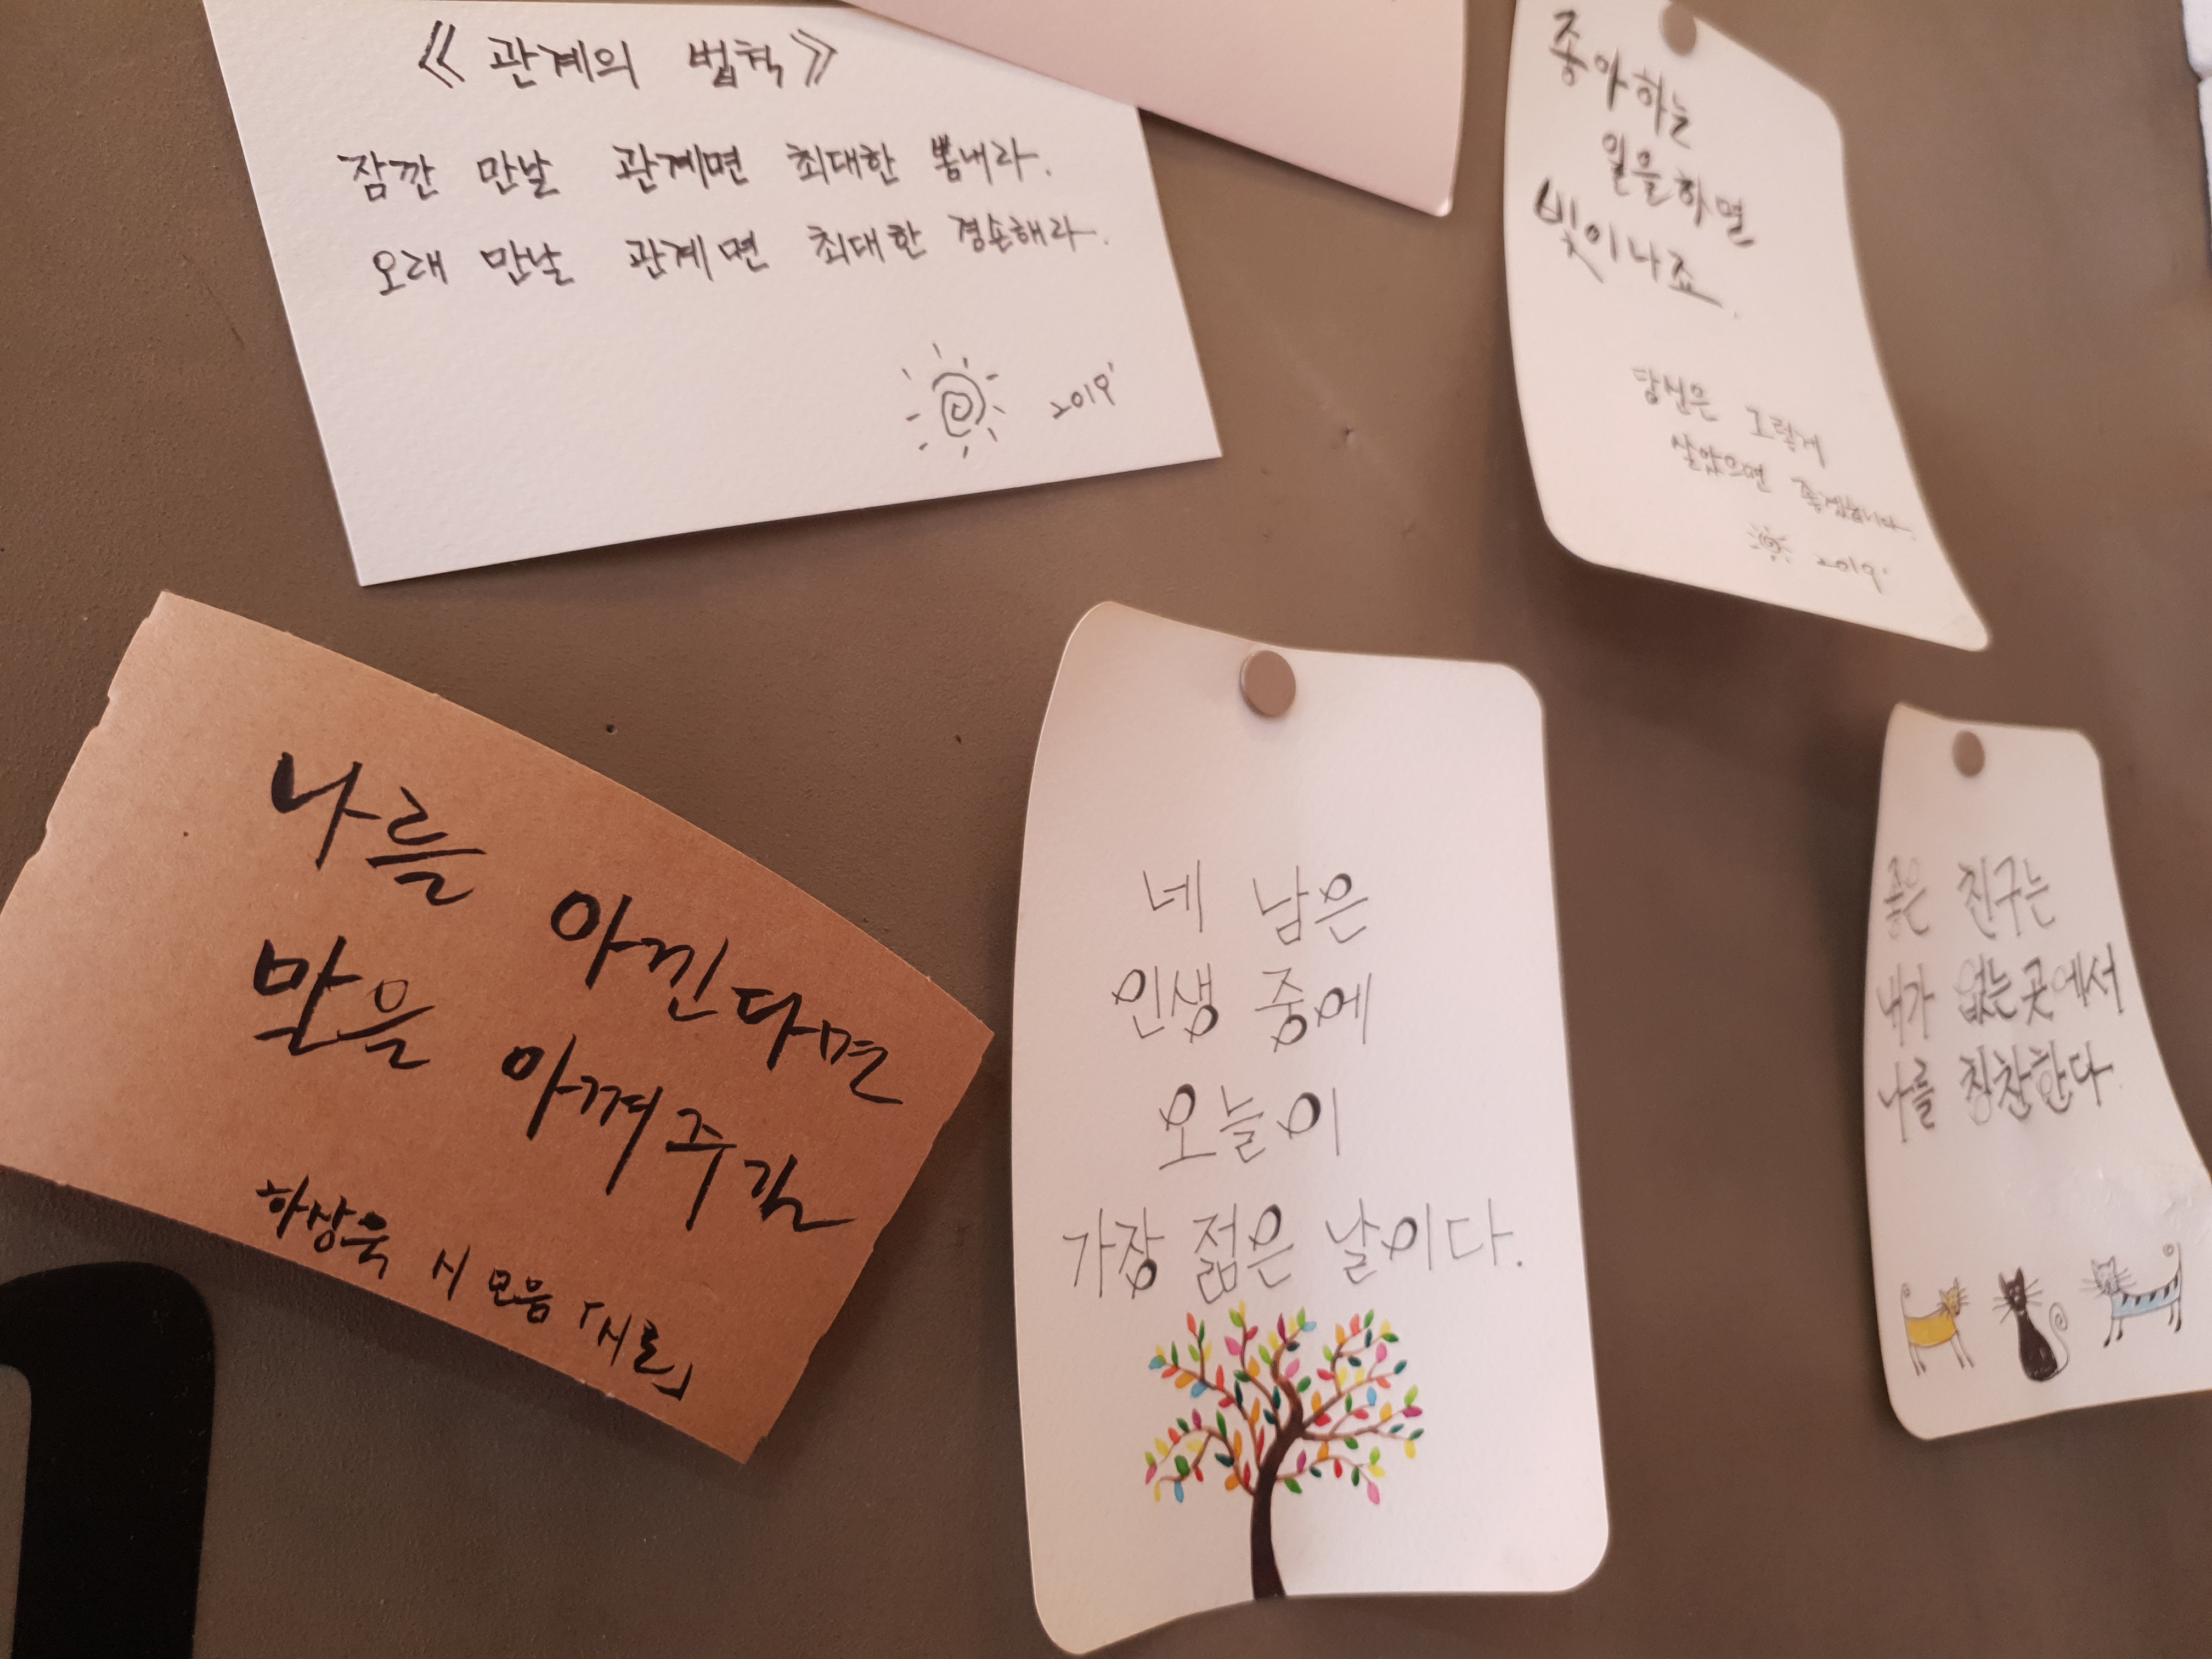 《 관계의 법칙 》
잠깐 만날 관계면 최대한 뽐내라.
오래 만날 관계면 최대한 겸손해라.
2019'
좋아하는
일을하면
빛이나죠.
당신은 그렇게
살았으면 좋겠습니다.
2019'
나를 아낀다면
말을 아껴주길
하상욱 시 모음 「시로」
네 남은
인생 중에
오늘이
가장 젊은 날이다.
좋은 친구는
내가 없는곳에서
나를 칭찬한다.